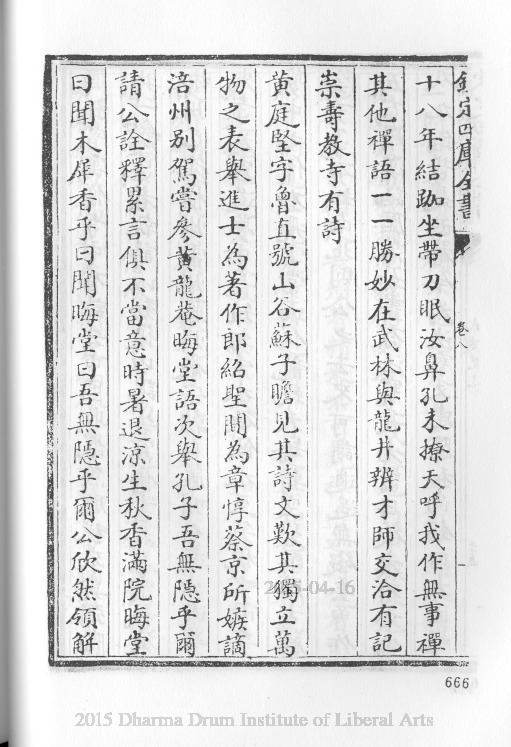 欽定四庫全書
卷八
十八年結跏坐帶刀眠汝鼻孔未撩天呼我作無事禪
其他禪語一一勝妙在武林與龍井辨才師交洽有記
崇壽教寺有詩
黄庭堅字魯直號山谷蘇子瞻見其詩文歎其獨立萬
物之表舉進士為著作郎紹聖間為章惇蔡京所嫉謫
涪州别駕嘗參黄龍菴晦堂語次舉孔子吾無隱乎爾
請公詮釋累言俱不當意時暑退涼生秋香滿院晦堂
曰聞木犀香乎曰聞晦堂曰吾無隱乎爾公欣然領解
666
2015 Dharma Drum Institute of Liberal Arts